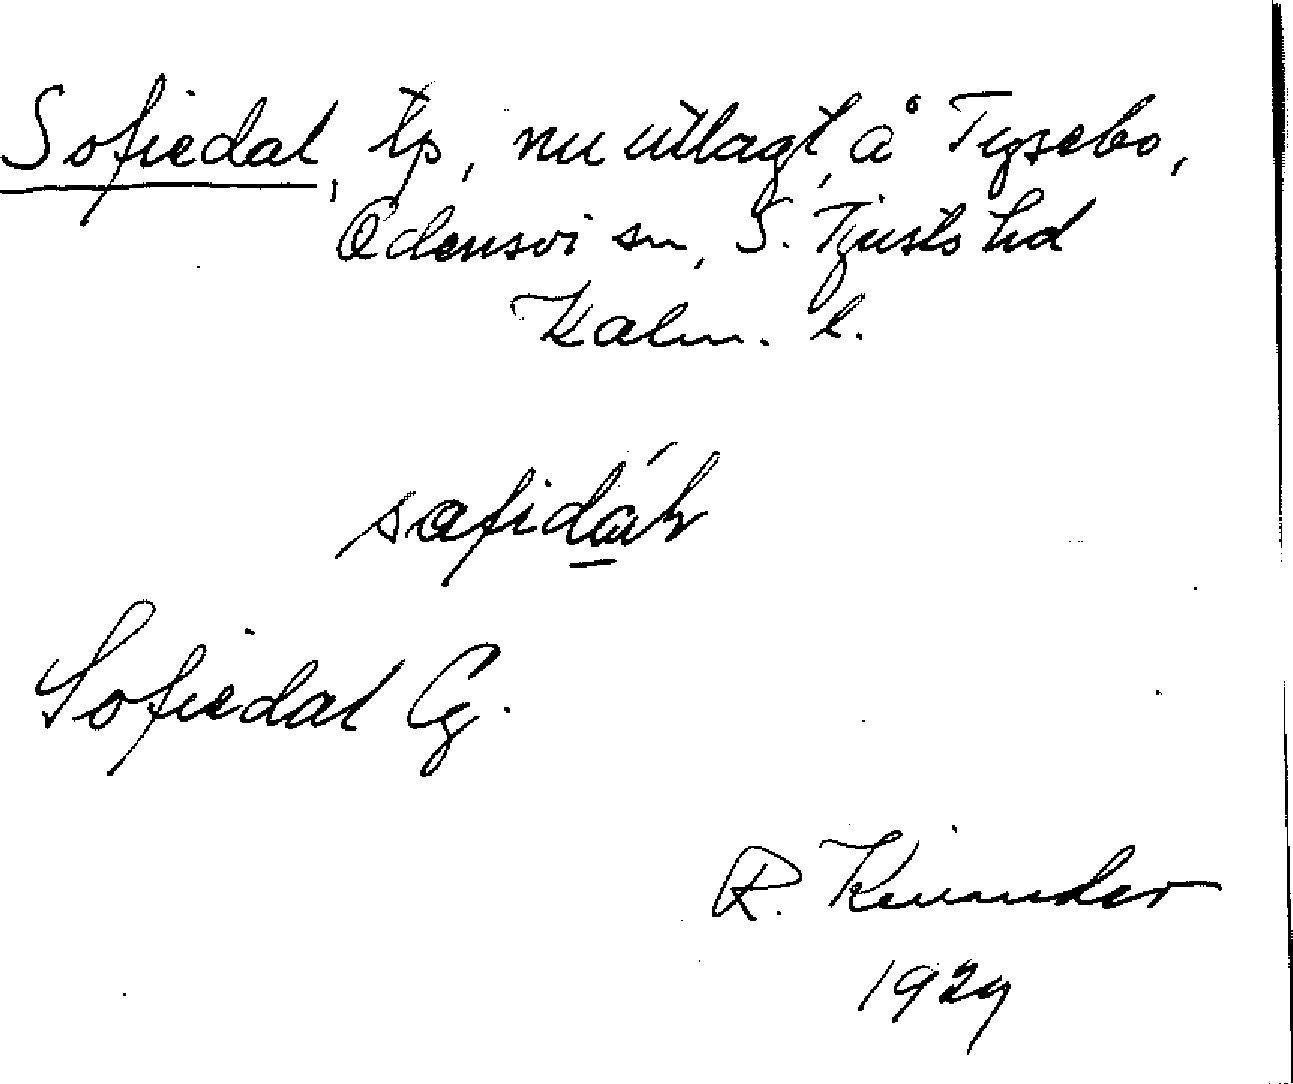 Sofiedal, tp, nu utlagt, å Tysebo,
Odensvi sn, S. Tjusts hd
Kalm. l.
safidáh
Sofiedal Cg.
R. Kinander
1929